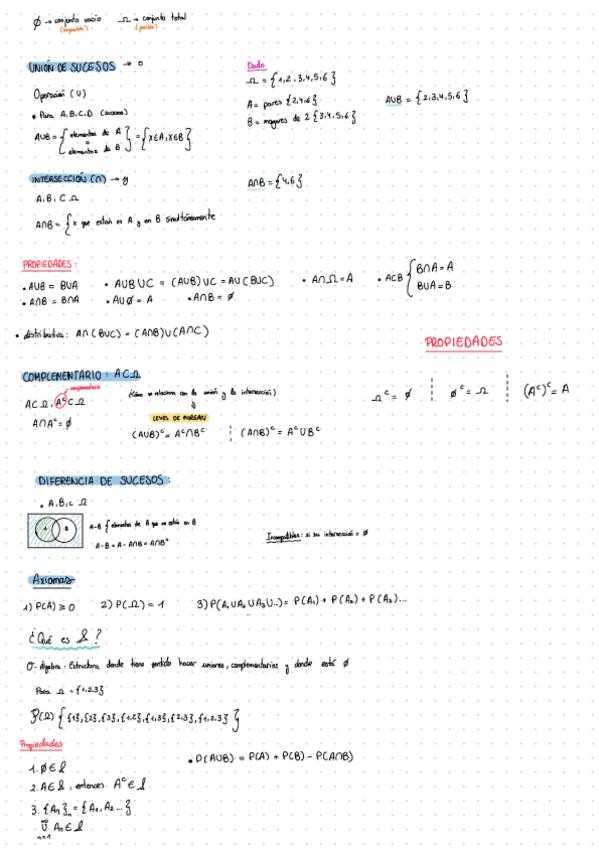 Ø → conjunto vacío (imposible) Ω → conjunto total (posible)
UNIÓN DE SUCESOS → o
Operación (U)
* Para A, B, C, D (sucesos)
AUB = { elementos de A o elementos de B } = { X∈A, X∈B }
Dado
Ω = {1, 2, 3, 4, 5, 6}
A = pares {2,4,6}
B = mayores de 2 {3,4,5,6}
AUB = {2,3,4,5,6}
INTERSECCIÓN (∩) → y
A, B, C Ω
A∩B = { x que están en A y en B simultáneamente
A∩B = {4,6}
PROPIEDADES:
• AUB = BUA
• A∩B = B∩A
• AUBUC = (AUB)UC = AU(BUC)
• AUØ = A
• A∩B = Ø
• A∩Ω = A
• ACB { B∩A = A
BUA = B
• distributiva: A∩(BUC) = (A∩B)U(A∩C)
PROPIEDADES
COMPLEMENTARIO: ACΩ
complementario
ACΩ, Aᶜ CΩ
A∩Aᶜ = Ø
¿Cómo se relaciona con la unión y la intersección?
LEYES DE MORGAN
(AUB)ᶜ = Aᶜ∩Bᶜ
(A∩B)ᶜ = AᶜUBᶜ
Ωᶜ = Ø
Øᶜ = Ω
(Aᶜ)ᶜ = A
DIFERENCIA DE SUCESOS:
• A, B, C Ω
A B
A-B { elementos de A que no están en B
A-B = A - A∩B = A∩Bᶜ
Incompatibles: si su intersección = Ø
Axiomas
1) P(A) ≥ 0
2) P(Ω) = 1
3) P(A₁UA₂UA₃U...) = P(A₁) + P(A₂) + P(A₃)...
¿Qué es 𝒜?
σ-Álgebra: Estructura donde tiene sentido hacer uniones, complementarios y donde está Ø
Para Ω = {1,2,3}
P(Ω) { {1}, {2}, {3}, {1,2}, {1,3}, {2,3}, {1,2,3} }
Propiedades
1. Ø∈𝒜
2. A∈𝒜, entonces Aᶜ∈𝒜
3. {Aₙ}ₙ = {A₁, A₂ ...}
∞
U Aₙ∈𝒜
n=1
• P(AUB) = P(A) + P(B) - P(A∩B)